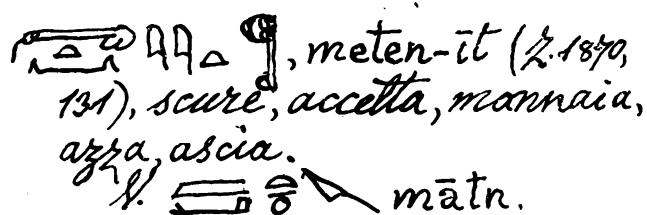 , meten-īt (Z. 1870,
131), scure, accetta, mannaia,
azza, ascia.
V. mātn.